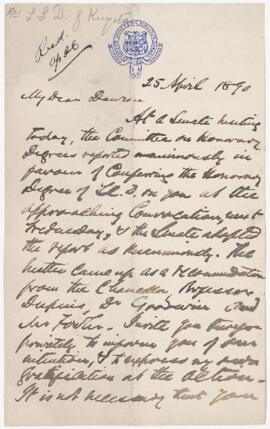 Re L.L.D. of Kingston
Recd.
25 April 1890
My Dear Dawson
At a Senate meeting
today, the Committee on Honorary
Degrees reported unanimously in
favour of Conferring the Honorary
Degree of LL.D. on you at the
approaching Convocation, next
Wednesday, & the Senate adopted
the report as unanimously. The
matter came up as a recommendation
from the Chancellor Professor
Dupuis, Dr Goodwin and
Mr I write you
privately to inform you of our
intention, & to express my own
gratification at the action.
It is not necessary that you